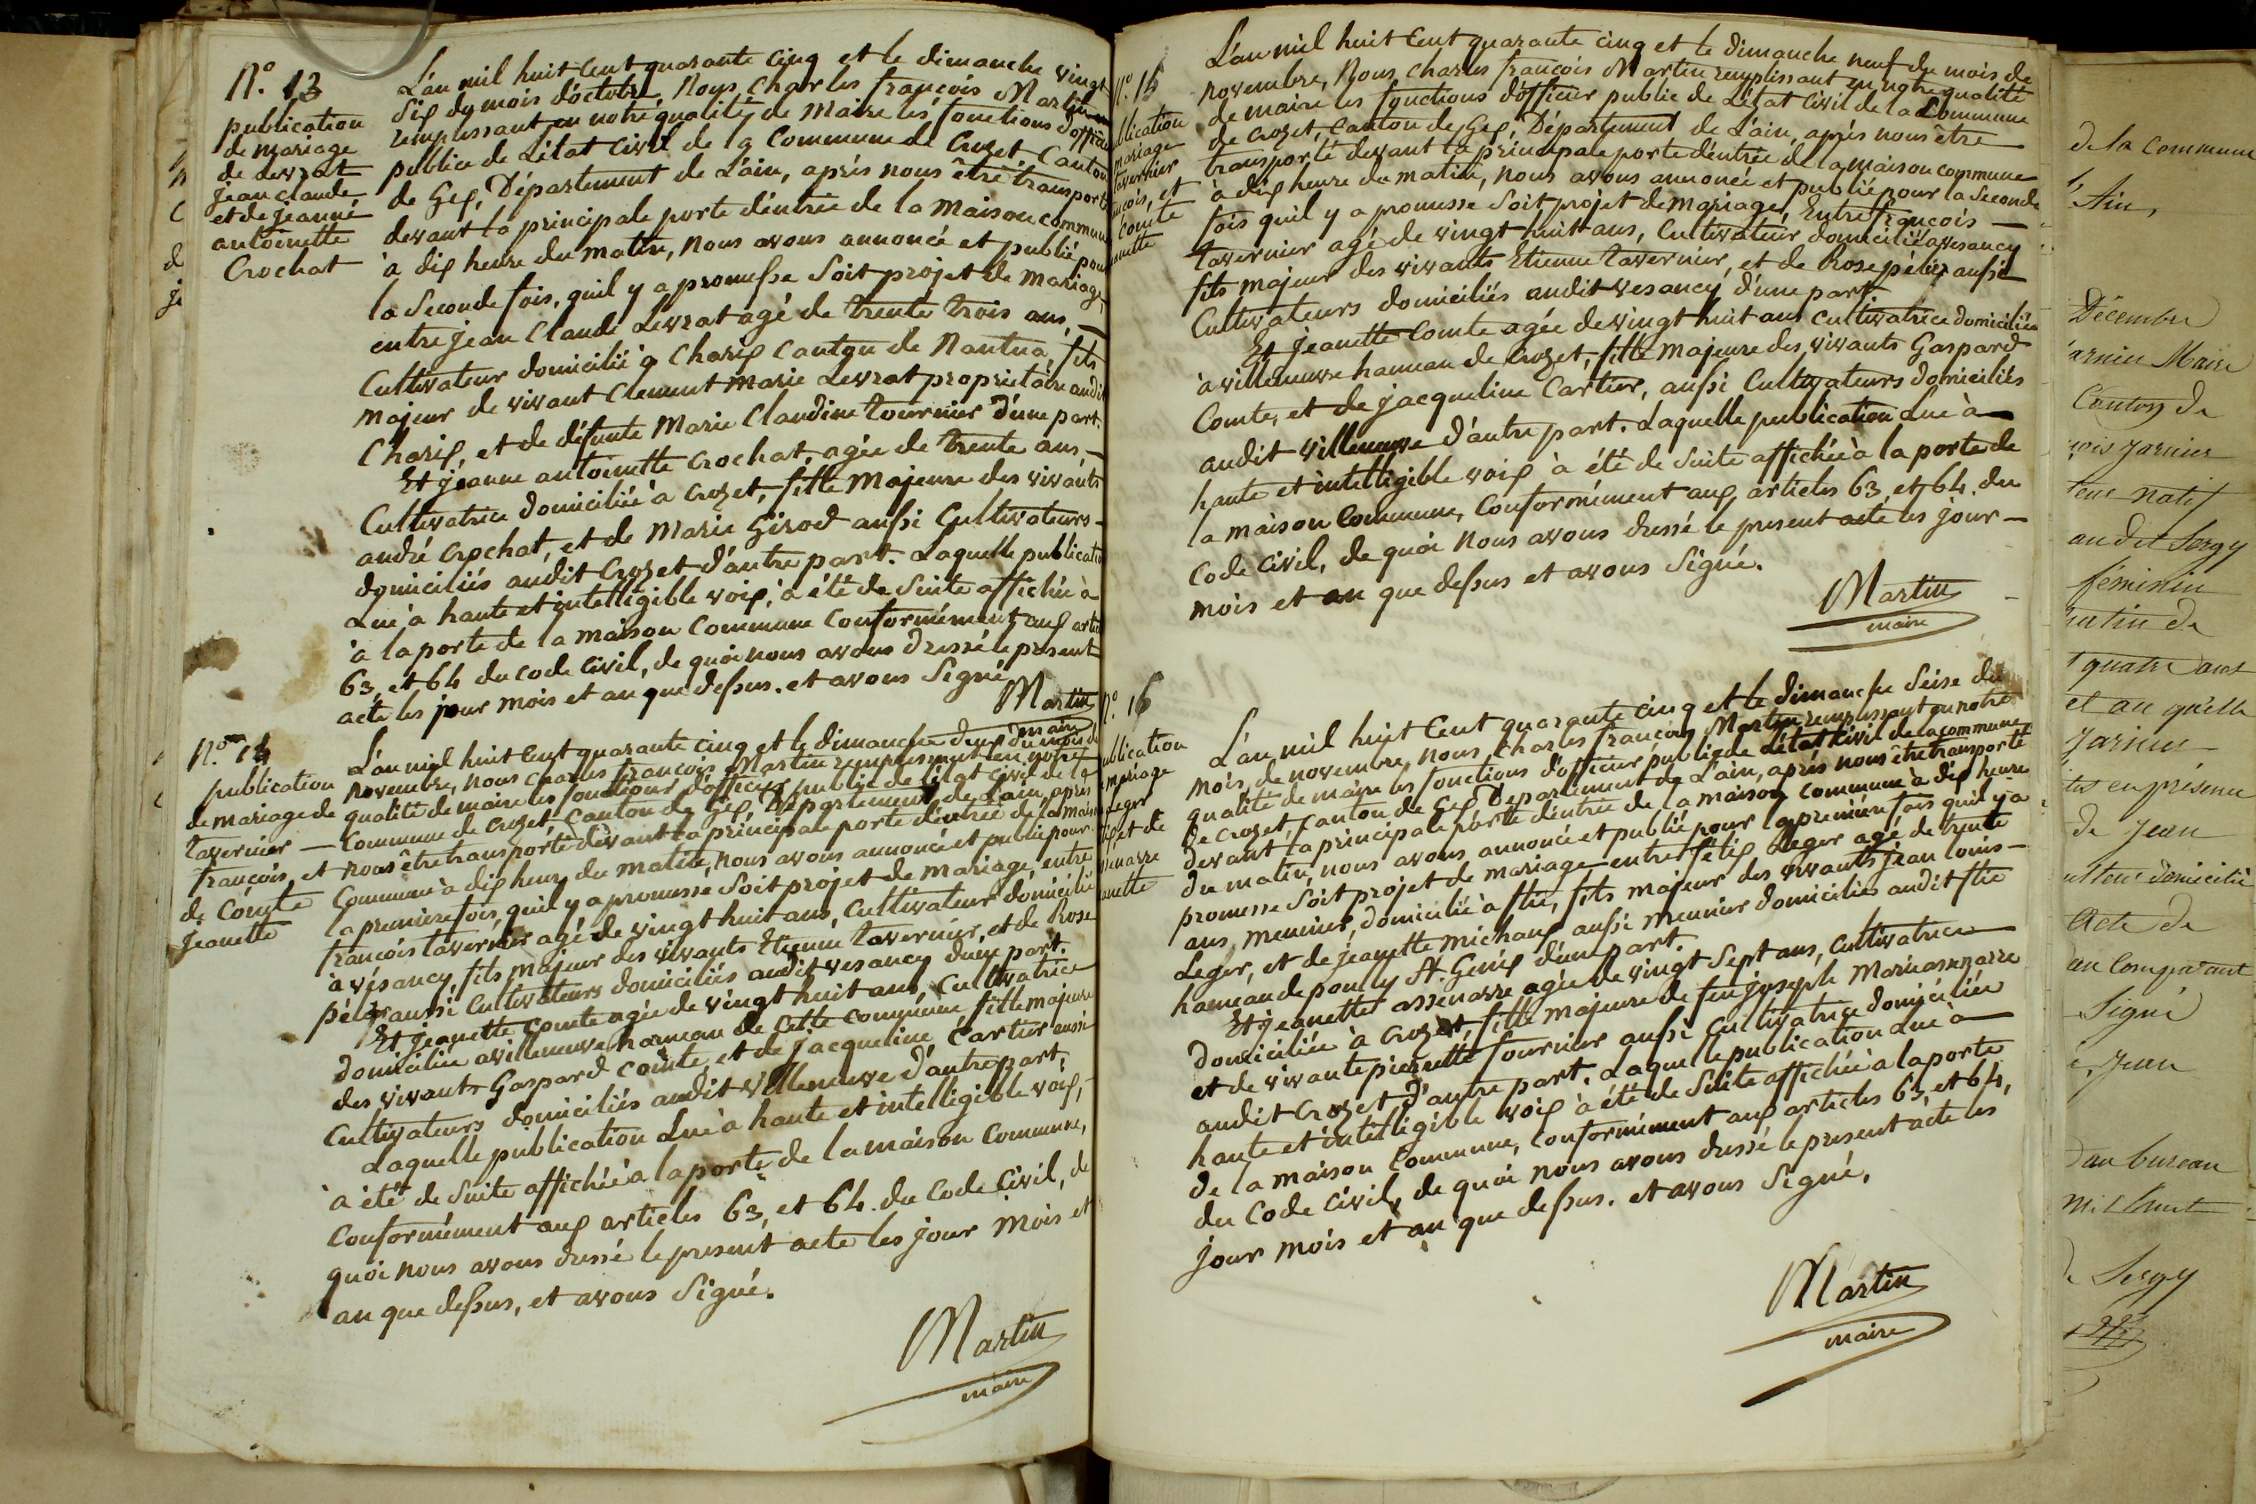 N.o 13
publication
de mariage
de Levrat
jean claude
et de jeanne
antoinette
Crochat
L'an mil huit Cent quarante Cinq et le dimanche vingt
Six du mois d'octobre, Nous, Charles françois Martin
remplissant en notre qualité de Maire les fonctions d'officier
publice de L'état Civil de la Commune de Crozet Canton
de Gex, Département de L'ain, après nous être transporté
devant la principale porte d'entrée de la Maison commune
à dix heure du matin, nous avons annoncé et publié pour
la Seconde fois, quil y a promesse Soit projet de mariage,
entre jean Claude Levrat agé de trente trois ans, —
Cultivateur domicilié à Charix Canton de Nantua, fils
majeur de vivant Clement marie Levrat propriétaire audit
Charix, et de défunte Marie Claudine tournier d'une part.
Et jeanne antoinette Crochat, agée de trente ans —
Cultivatrice domiciliée à Crozet, fille Majeure des vivants
andré Crochat, et de Marie Girod aussi Cultivateurs —
domiciliés audit Crozet d'autre part. Laquelle publication
Lue à haute et intelligible voix, à été de Suite affichée à
à la porte de la maison Commune Conformément aux articles
63, et 64 du code Civil, de quoi nous avons dressé le présent
acte les jour mois et an que dessus. et avons Signé
Martin
maire
N.o 14
publication
de mariage de
tavernier —
françois, et
de Comte
jeanette
L'an mil huit Cent quarante Cinq et le dimanche deux du mois de
Novembre, nous Charles françois Martin remplissant en notre
qualité de maire les fonctions d'officier public de L'état Civil de la
Commune de Crozet, Canton de Gex, Département de L'ain, après
nous être transporté devant la principale porte d'entrée de la maison
Commune à dix heure du matin, nous avons annoncé et publié pour
la premiere fois, quil y a promesse Soit projet de mariage, entre
françois tavernier agé de vingt huit ans, Cultivateur domicilié
à vésancy, fils majeur des vivants Etienne tavernier, et de Rose
aussi Cultivateurs domiciliés audit vesancy d'une part.
Et jeanette Comte agée de vingt huit ans, Cultivatrice
domiciliée a villeneuve hameau de Cette Commune fille majeure
des vivants Gaspard Comte, et de jacqueline Cartier aussi
Cultivateurs domiciliés audit Villeneuve d'autre part.
Laquelle publication Lue à haute et intelligible voix, —
à été de Suite affichée à la porte de la maison Commune,
Conformément aux articles 63, et 64. du Code Civil, de
quoi nous avons dressé le présent acte les jour mois et
an que dessus, et avons Signé.
Martin
maire
N.o 15
L'an mil huit Cent quarante Cinq et le dimanche neuf du mois de
novembre, Nous, Charles françois Martin remplissant en notre qualité
de maire les fonctions d'officier public de L'état Civil de la Commune
de Crozet, Canton de Gex, Département de L'ain, après nous être
transporté devant la principale porte d'entrée de la maison commune
à dix heure du matin, nous avons annoncé et publié pour la Seconde
fois quil y a promesse Soit projet de mariage, Entre françois —
tavernier agé de vingt huit ans, Cultivateur domicilié a vesancy
fils majeur des vivants Etienne tavernier, et de Rose aussi
Cultivateurs domiciliés audit vesancy d'une part
Et jeanette Comte agée de vingt huit ans cultivatrice domiciliée
à villeneuve hameau de Crozet, fille Majeure des vivants Gaspard
Comte, et de jacqueline Cartier, aussi Cultivateurs domiciliés
audit Villeneuve d'autre part. Laquelle publication Lue à
haute et intelligible voix à été de Suite affichée à la porte de
la maison Commune, Conformément aux articles 63, et 64. du
Code Civil, de quoi nous avons dressé le présent acte les jour —
mois et an que dessus et avons Signé.
Martin
maire
N.o 16
L'an mil huit Cent quarante Cinq et le dimanche Seise du
mois de novembre, nous Charles françois Martin remplissant en notre
qualité de maire les fonctions d'officier public de L'état Civil de la commune
de Crozet, Canton de Gex, Département de L'ain, après nous être transporté
devant la principale porte d'entrée de la maison Commune à dix heure
du matin, nous avons annoncé et publié pour la première fois quil y a
promesse Soit projet de mariage entre félix Leger agé de trente
ans, meunier, domicilié à flie, fils majeur des vivants jean louis —
Leger, et de jeanette michaux aussi meunier domiciliés audit flie
haméau de pouilly St Genix d'une part.
Et jeanette assenarre agée de vingt Sept ans, Cultivatrice
domiciliée à Crozet, fille majeure de feu joseph Marie assenarre
et de vivante pierrette fournier aussi Cultivatrice domiciliée
audit Crozet d'autre part. Laquelle publication Lue à
haute et intelligible voix à été de Suite affichée à la porte
de la maison Commune, Conformément aux articles 63, et 64,
du Code Civil, de quoi nous avons dressé le présent acte les
jour mois et an que dessus. et avons Signé.
Martin
maire
de la commune
Ain,
Décembre
Maire
Canton de
natif
au dit Sergy
féminin
de
quatre ans
et an qu'elle
en présence
de Jean
domicilié
Acte de
comparant
Signé
Jean
au bureau
mil huit
Sergy